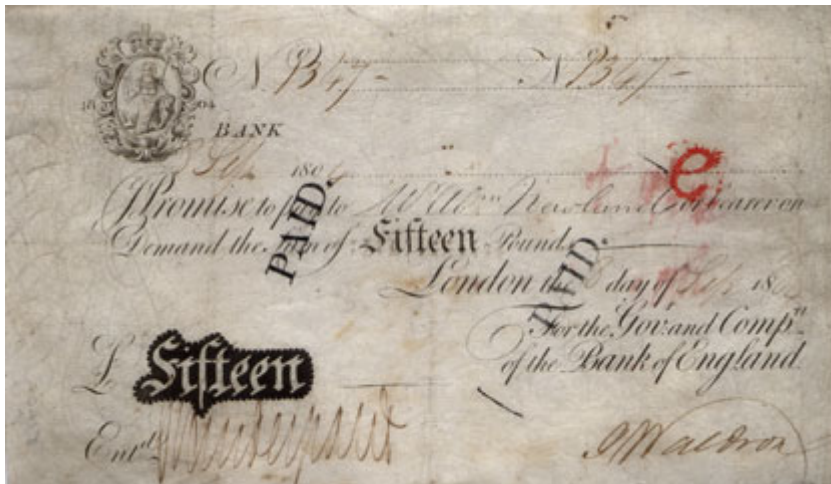 N B47- N B47-
18 04
BANK
180
e
I Promise to pay to Mr Abm Newland or bearer on
Demand the Sum of Fifteen Pounds
London the day of Sep 180
For the Gov.r and Comp.a
of the Bank of England.
£ Fifteen
Ent.d
J Waldron
PAID.
PAID.